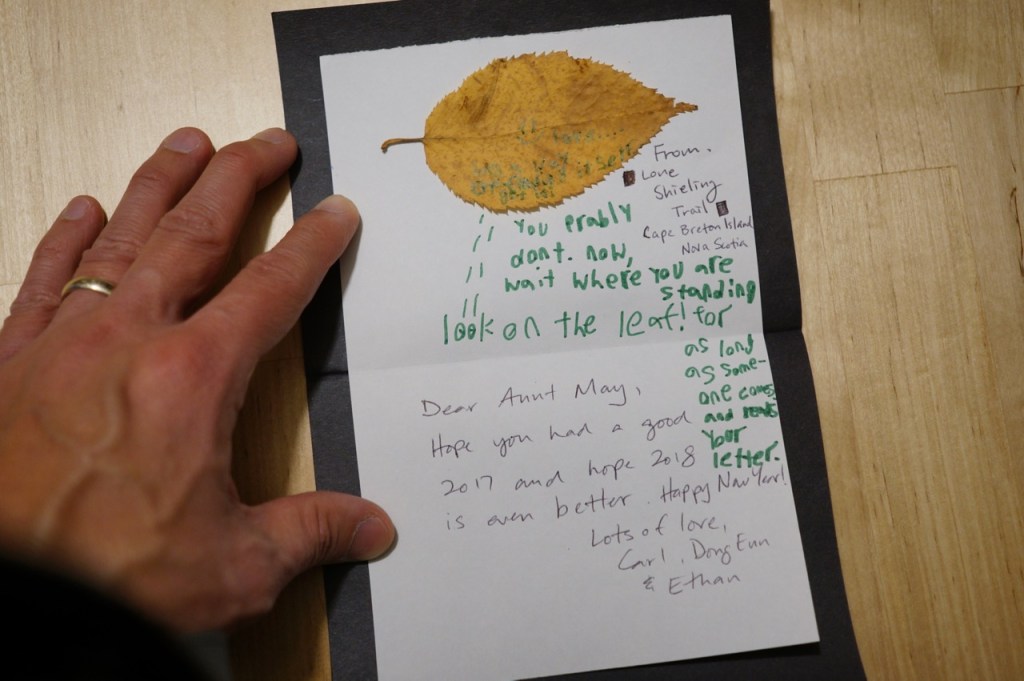 From.
Lone
Shieling
Trail
Cape Breton Island
Nova Scotia
You erably
dont. now,
wait where you are
standing
look on the leaf! for
as long
as some-
one comes
and reads
Your
letter.
Dear Aunt May,
Hope you had a good
2017 and hope 2018
is even better. Happy New Year!
Lots of love,
Carl, Dong Eun
& Ethan